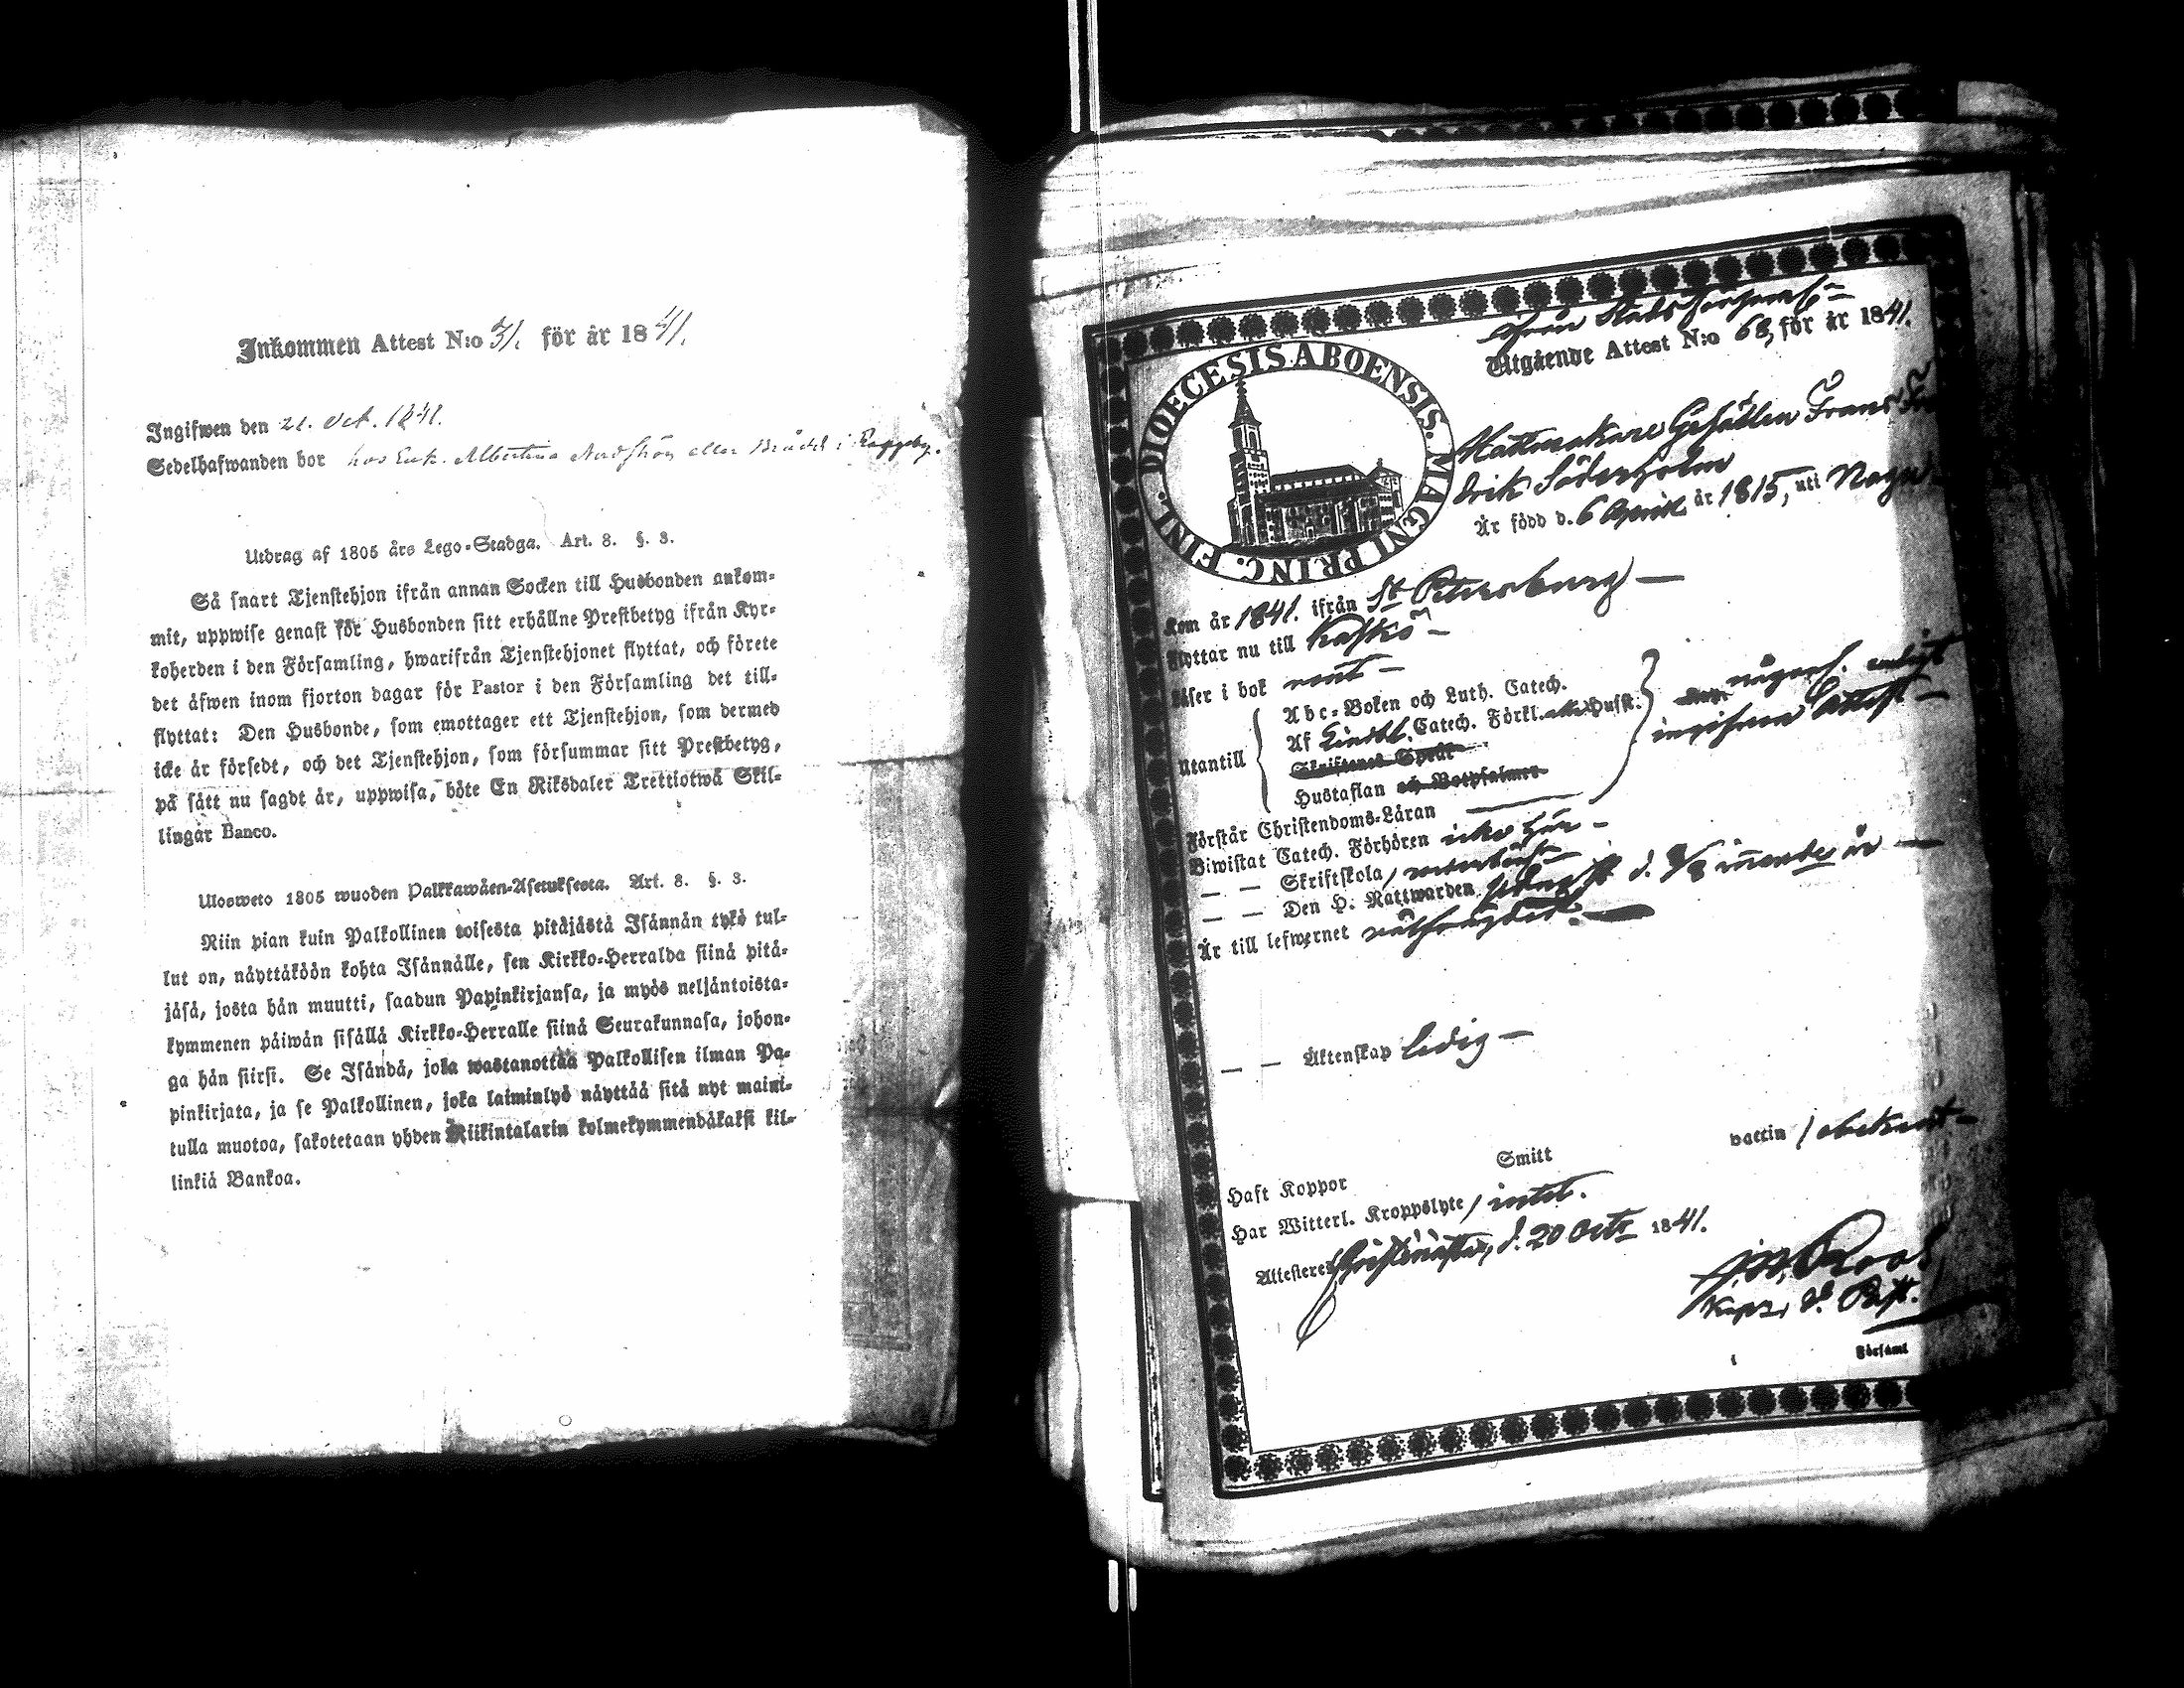 Inkommen Attest N:o 31. för år 1841.
Ingifwen den 21. Oct. 1841.
Sedelhafwanden bor hos Enk. Albertina
Utdrag af 1805 års Lego-Stadga. Art. 8. §. 3.
Så snart Tjenstehjon ifrån annan Socken till Husbonden ankom-
mit, uppwise genast för Husbonden sitt erhållne Prestbetyg ifrån Kyr-
koherden i den Församling, hwarifrån Tjenstehjonet flyttat, och förete
det åfwen inom fjorton dagar för Pastor i den Församling det till-
flyttat: Den Husbonde, som emottager ett Tjenstehjon, som dermed
icke är försedt, och det Tjenstehjon, som försummar sitt Prestbetyg,
på sätt nu sagdt är, uppwisa, böte En Riksdaler Trettiotwå Skil-
lingar Banco.
Ulosweto 1805 wuoden Palkkawäen-Asetuksesta. Art. 8. §. 3.
Niin pian kuin Palkollinen toisesta pitäjästä Isännän tykö tul-
lut on, näyttäköön kohta Isännälle, sen Kirkko-Herralda siinä pitä-
jäsä, josta hän muutti, saadun Papinkirjansa, ja myös neljäntoista-
kymmenen päiwän sisällä Kirkko-Herralle siinä Seurakunnasa, johon-
ga hän siirsi. Se Isändä, joka wastanottaa Palkollisen ilman Pa-
pinkirjata, ja se Palkollinen, joka laiminlyö näyttää sitä nyt maini-
tulla muotoa, sakotetaan yhden Riikintalarin kolmekymmendäkaksi kil-
linkiä Bankoa.
DIOECESIS ABOENSIS. MAGNI PRINC. FINL.
Från Stads
Utgående Attest N:o 68, för år 1841.
Gesällen Frans
Erik Söderholm
Är född d. 6 April år 1815, uti Nagu
Kom år 1841. ifrån St Petersburg —
flyttar nu till Kaskö —
Läser i bok rent —
Utantill
Abc-Boken och Luth. Catech.
Af Lindbl. Catech. Förkl. Husst.
Skriftenes Språk
Hustaflan och Botpsalmer
någorl. enligt
ingifven Attest —
Förstår Christendoms-Läran
Biwistat Catech. Förhören icke här —
— — Skriftskola,
— — Den H. Nattwarden d. innevarande år —
Är till lefwernet
— — Äktenskap ledig —
Haft Koppor Smitt vaccin / obekant —
Har Witterl. Kroppslyte / intet.
Attesterer Christinestad, d. 20 Octr 1841.
J. M. Roos
Kapl. V. Past.
Församl